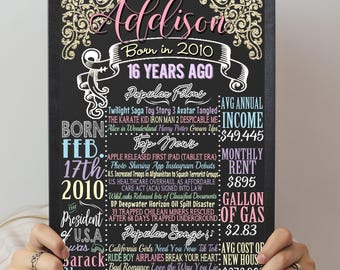 Addison
Born in 2010
16 YEARS AGO
Popular Films
Twilight Saga Toy Story 3 Avatar Tangled
THE KARATE KID IRON MAN 2 DESPICABLE ME
Alice in Wonderland Harry Potter Grown Ups
Top News
APPLE RELEASED FIRST IPAD (TABLET ERA)
Photo Sharing App Instagram Debuts
U.S. Increased Troops in Afghanistan to Squash Terrorist Groups
U.S. HEALTHCARE OVERHAUL AS AFFORDABLE
CARE ACT (ACA) SIGNED INTO LAW
WikiLeaks Released lots of Classified Documents
BP Deepwater Horizon Oil Spill Disaster
33 TRAPPED CHILEAN MINERS RESCUED
AFTER 69 DAYS TRAPPED UNDERGROUND
Popular Songs
California Gurls Need You Now Tik Tok
RUDE BOY AIRPLANES BREAK YOUR HEART
Bad Romance Love the Way You Lie
BORN
FEB
17th
2010
The
President
of U.S.A.
was
Barack
AVG ANNUAL
INCOME
$49,445
MONTHLY
RENT
$895
GALLON
OF GAS
$2.83
AVG COST
OF NEW
HOUSE